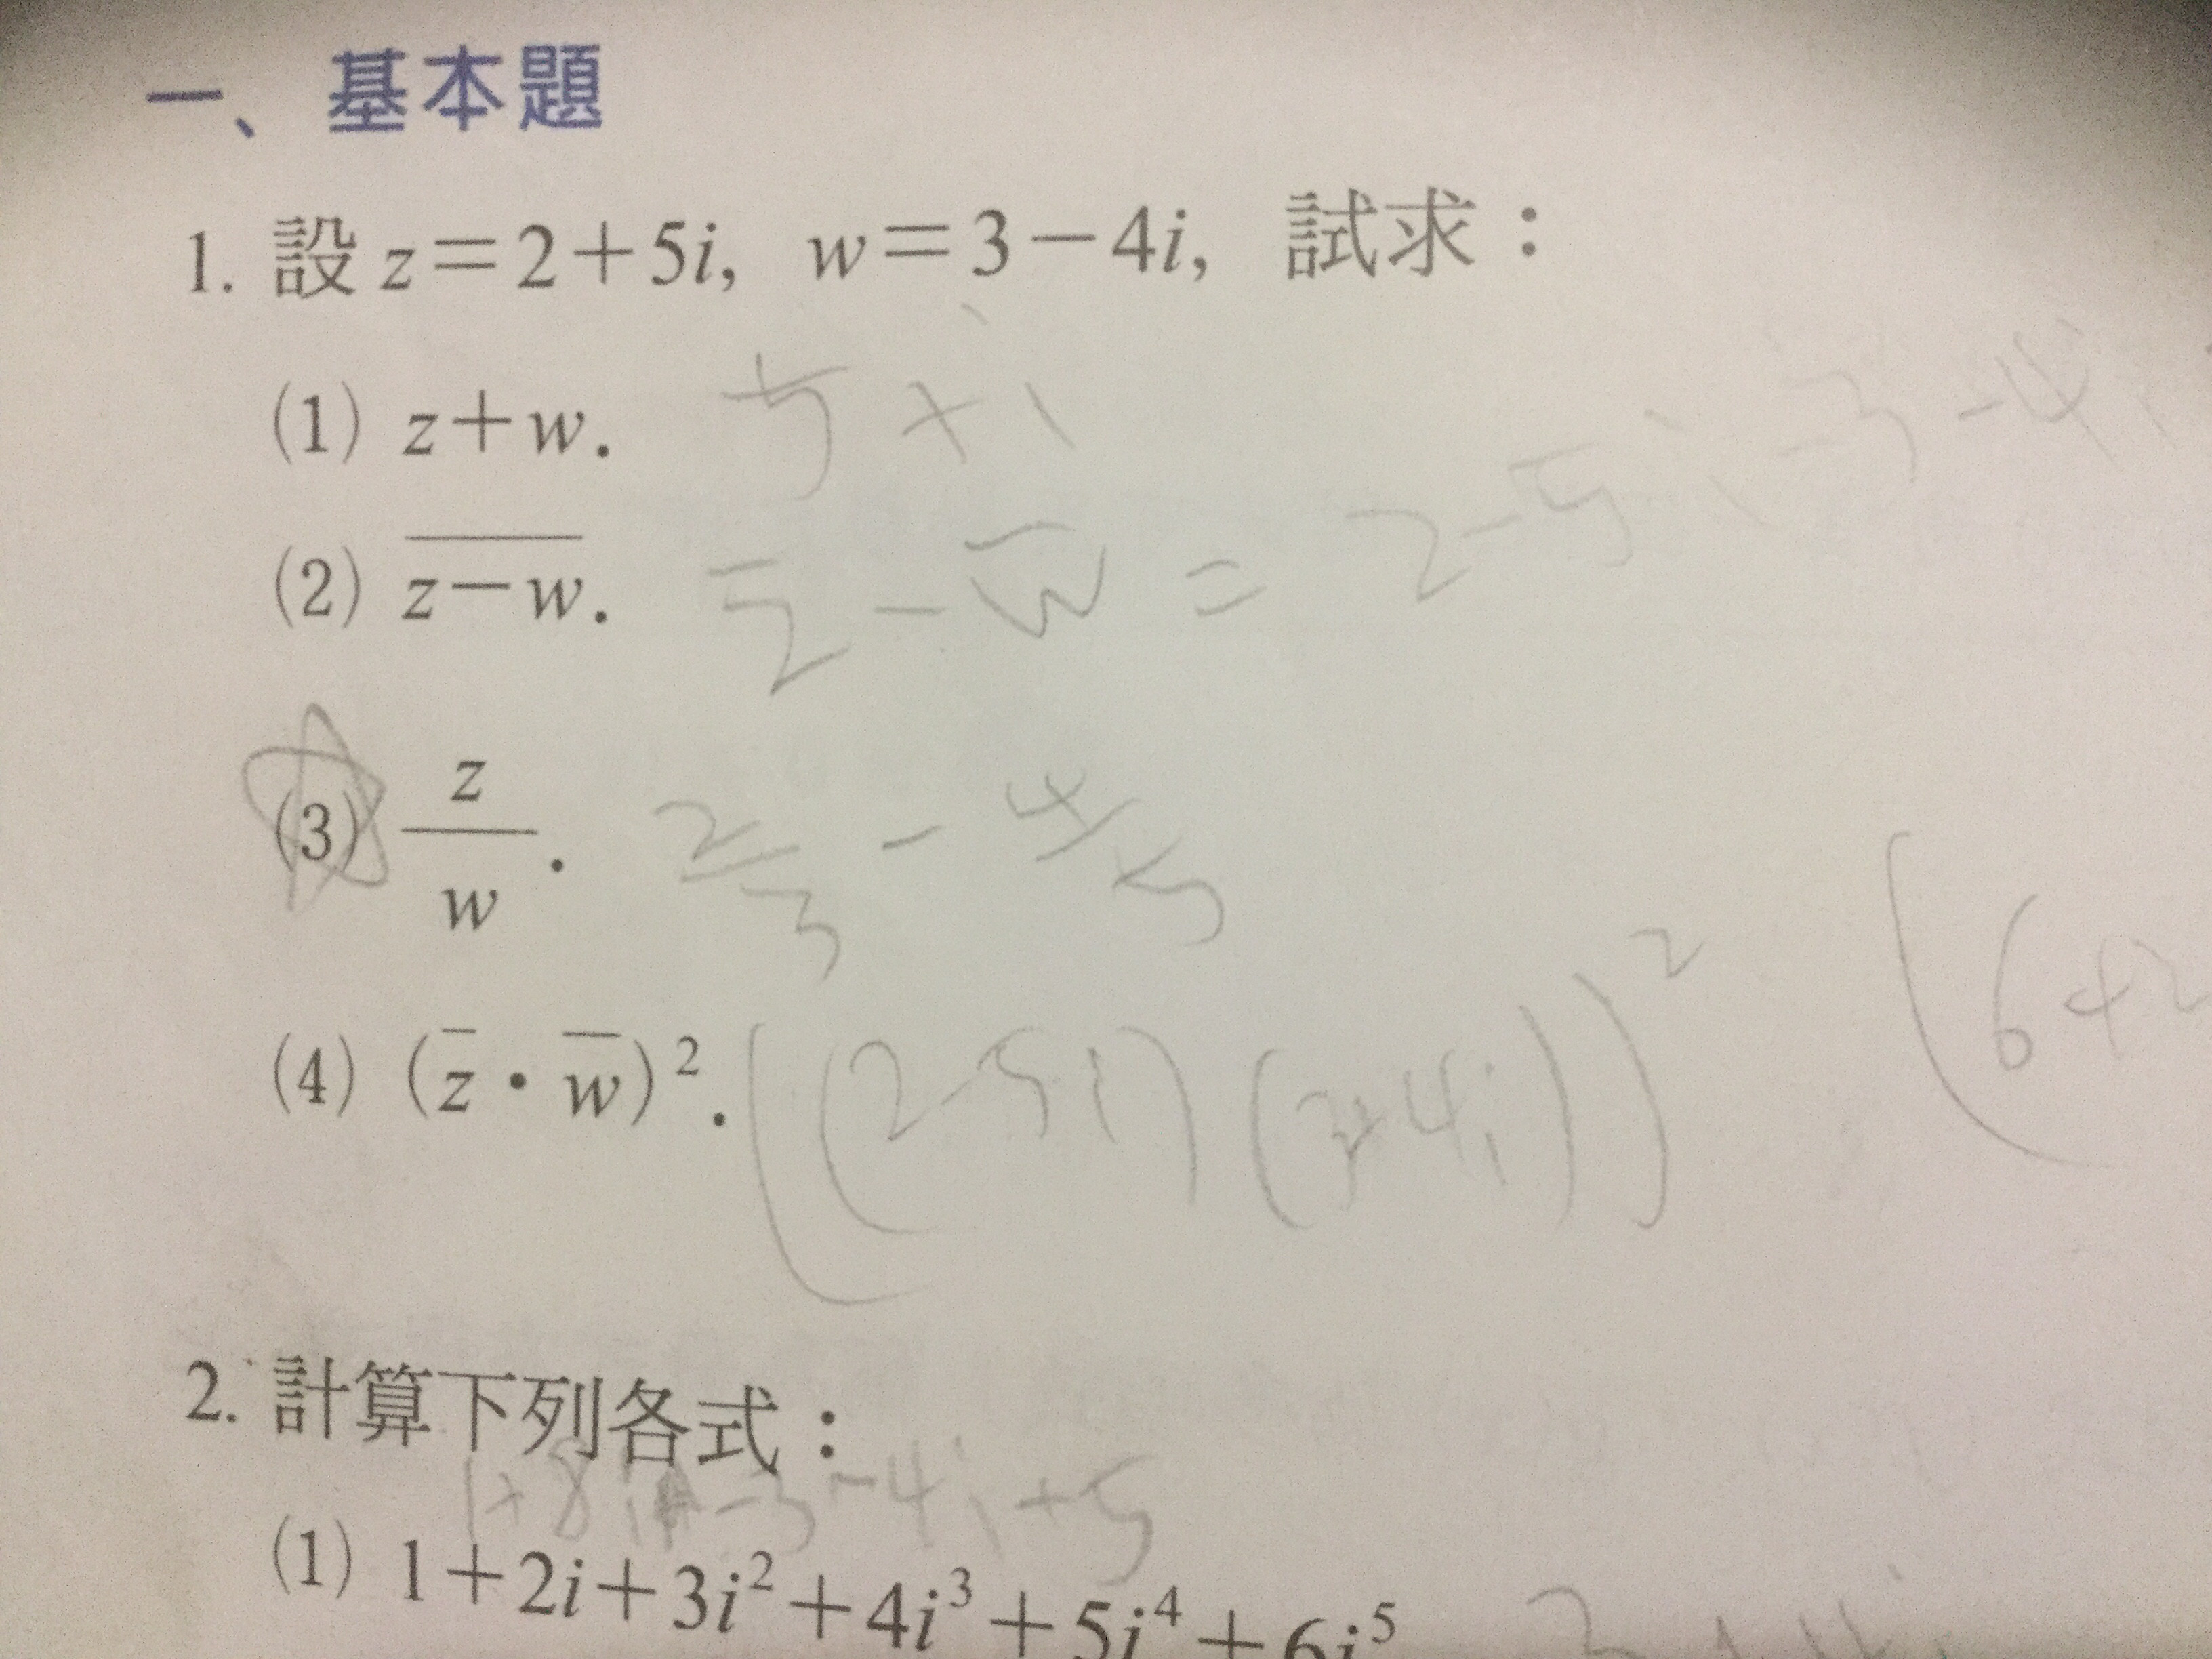 一、基本題
1. 設 z=2+5i, w=3-4i, 試求：
(1) z+w. 5+i
(2) \overline{z-w}. \overline{z} - \overline{w} = 2-5i-3-4i
(3) \frac{z}{w}. \frac{2}{3} - \frac{4}{5}
(4) (\overline{z}・\overline{w})². ((2-5i)(3+4i))² (6+2
2. 計算下列各式：
1+8i -3-4i+5
(1) 1+2i+3i²+4i³+5i⁴+6i⁵